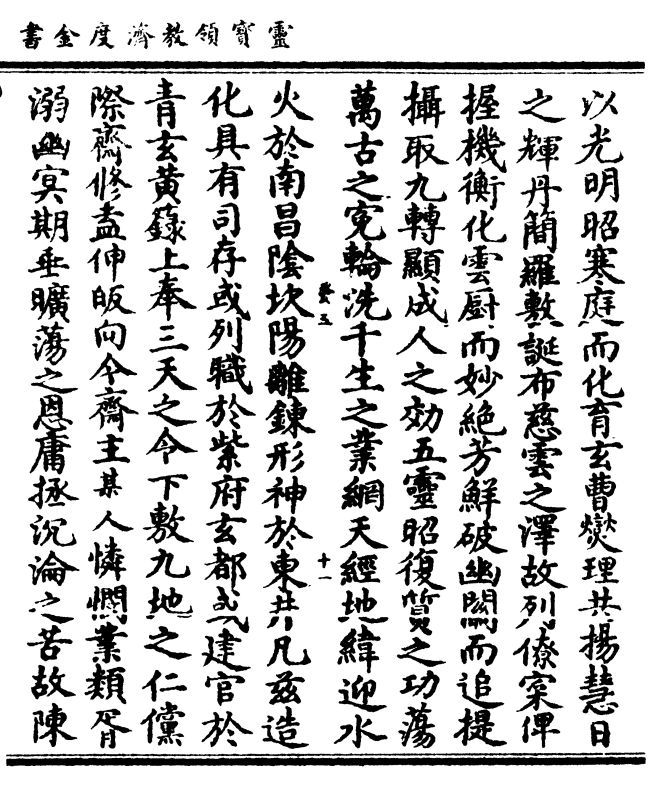 靈寶領教濟度金書
以光明昭寒庭而化育玄曹燮理共揚慧日
之輝丹簡羅敷誕布慈雲之澤故列僚寀俾
握機衡化雲厨而妙絶芳鮮破幽關而追提
攝取九轉顯成人之効五靈昭復質之功蕩
萬古之寃輪洗千生之業網天經地緯迎水
癸五
十一
火於南昌陰坎陽離鍊形神於東井凡茲造
化具有司存或列職於紫府玄都或建官於
青玄黃籙上奉三天之令下敷九地之仁儻
際齋修盍伸皈向今齋主某人憐憫業類胥
溺幽冥期垂曠蕩之恩庸拯沉淪之苦故陳